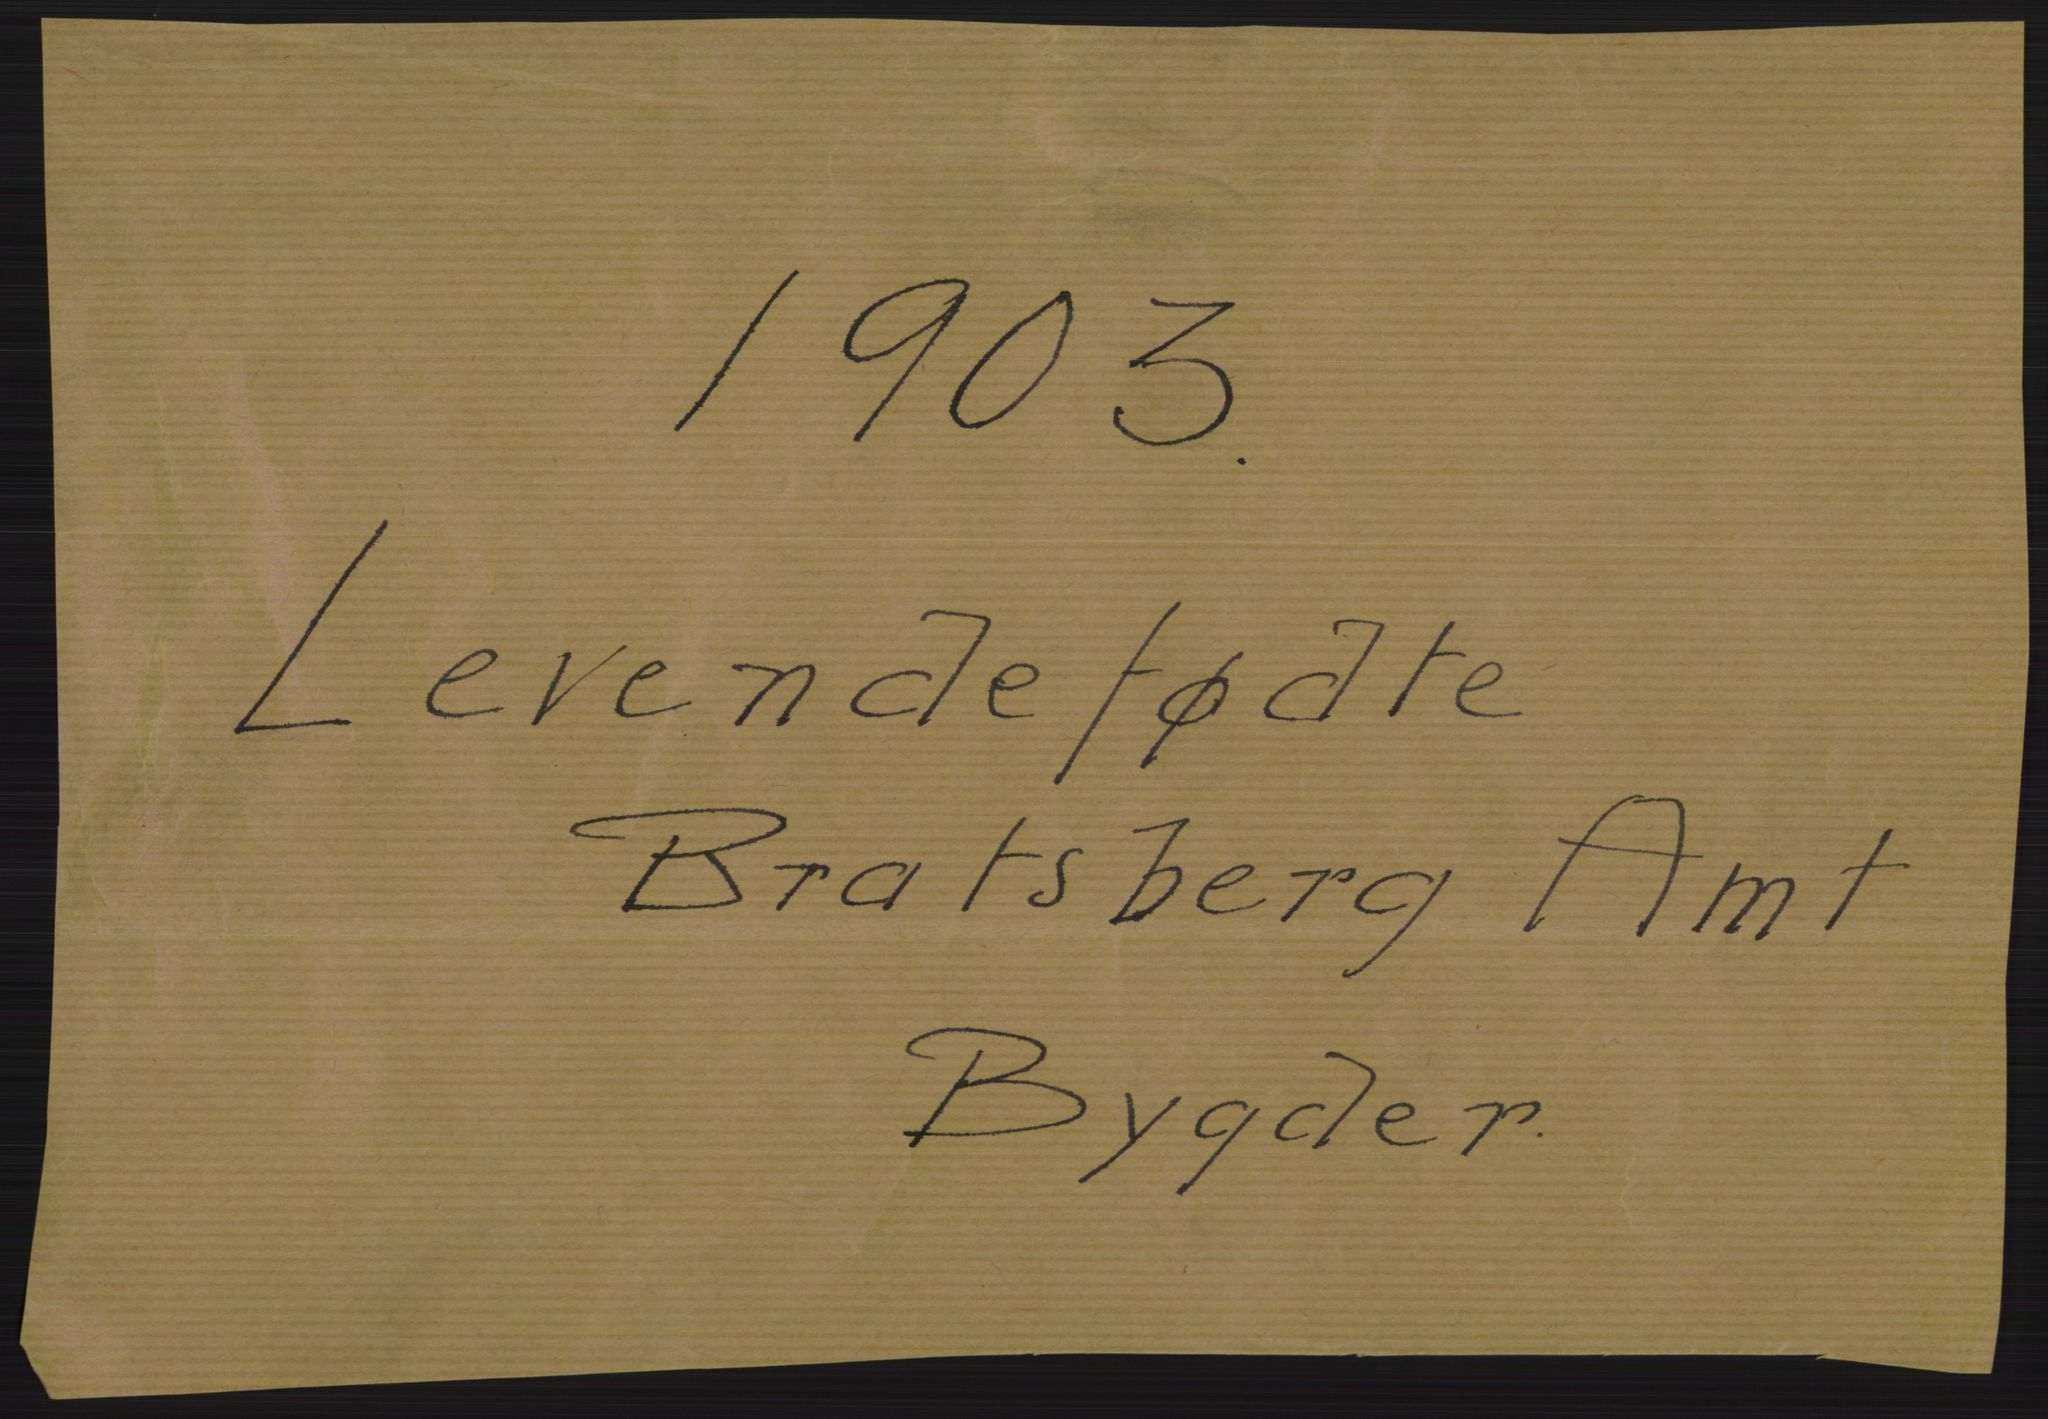 1903.
Levendefødte
Bratsberg Amt
Bygder.